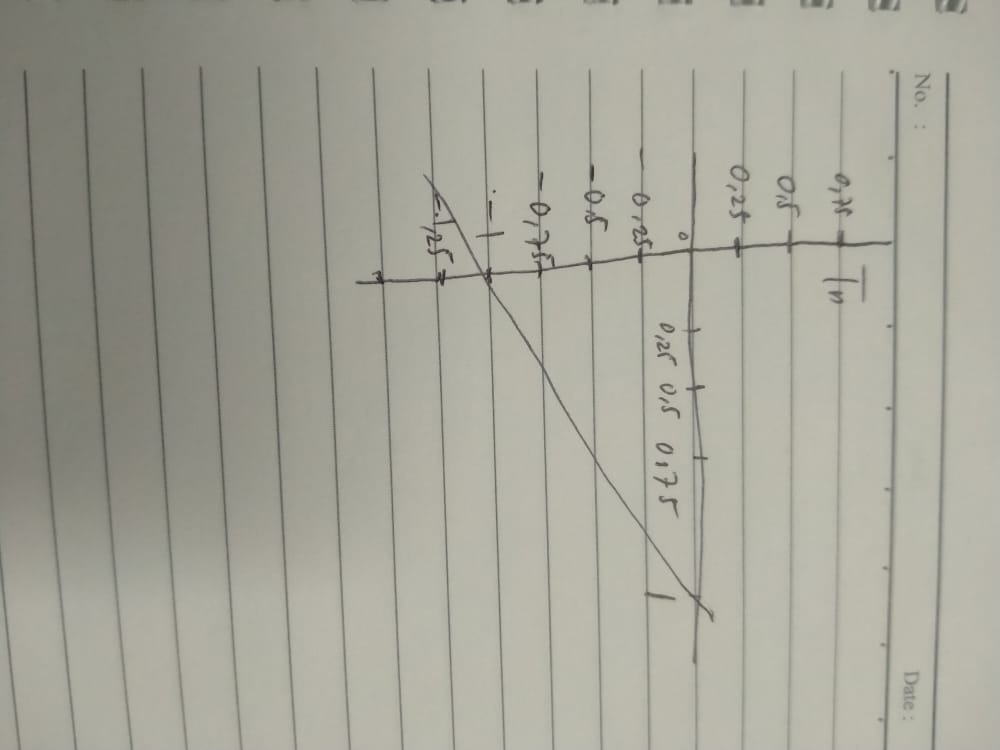 No. : Date :
0,75
0,5
0,25
0
0,25 0,5 0,75 1
-0,25
-0,5
-0,75
-1
-1,25